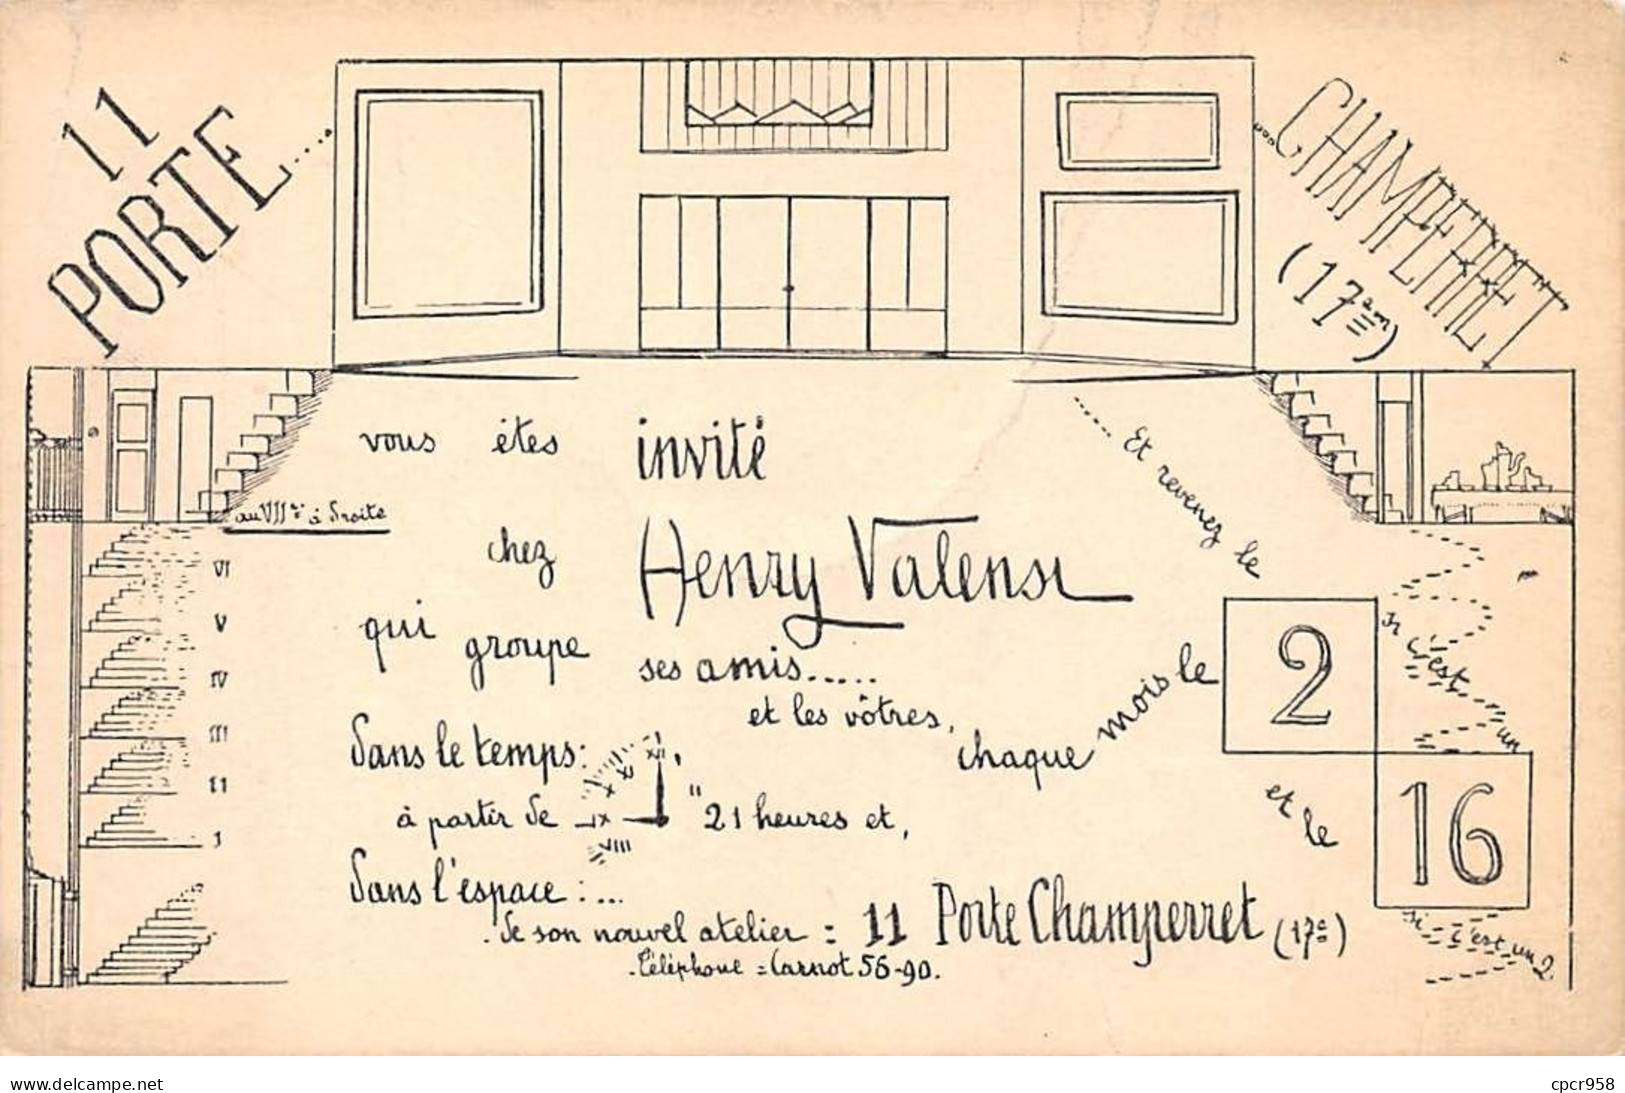 11
PORTE....
...CHAMPERRET
(17ème)
vous êtes invité
au VIIè à Droite
chez Henry Valensi
qui groupe ses amis.....
et les vôtres,
chaque mois le 2
et le 16
..... Et revenez le
si c'est un
si c'est un 2
Dans le temps:
à partir de "21 heures et,
XII
XI
X
IX
VIII
Dans l'espace :...
. de son nouvel atelier : 11 Porte Champerret (17e)
. Téléphone = Carnot 56-90.
VI
V
IV
III
II
I
www.delcampe.net
cpcr958